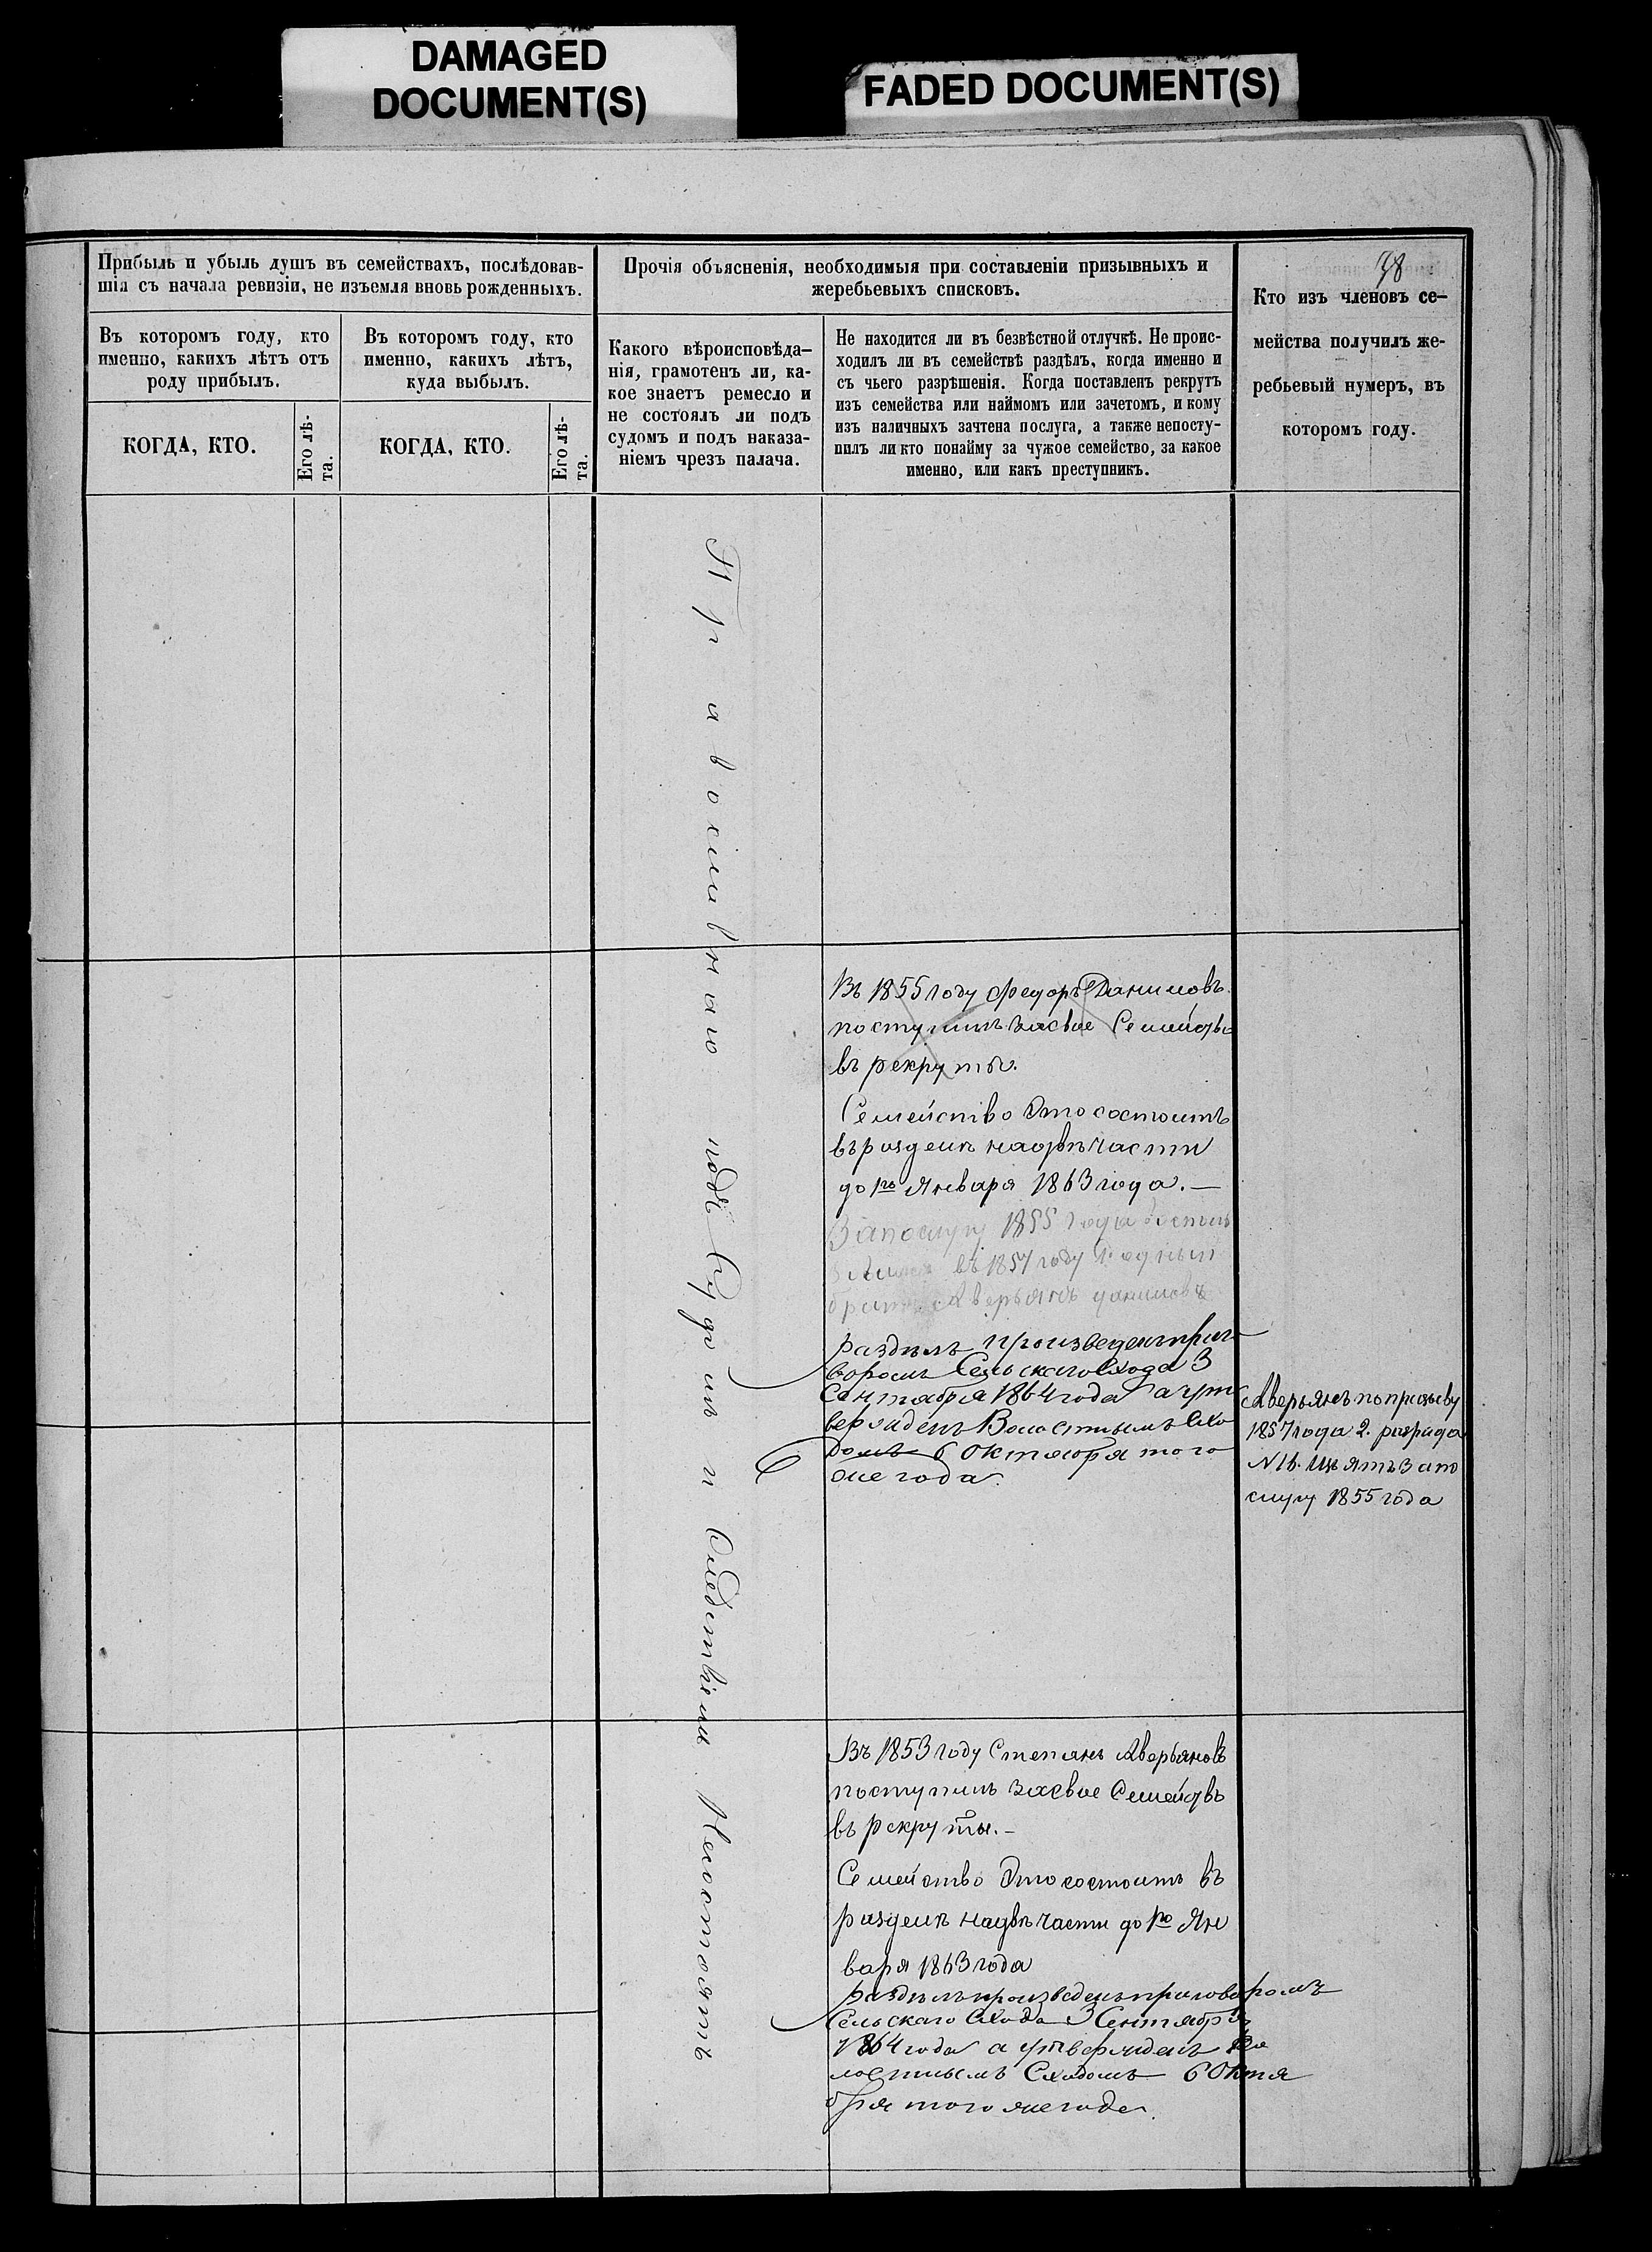 DAMAGED
DOCUMENT(S)
FADED DOCUMENT(S)
38
Прибыль и убыль душъ въ семействахъ, послѣдовав-
шія съ начала ревизіи, не изъемля вновь рожденныхъ.
Въ которомъ году, кто
именно, какихъ лѣтъ отъ
роду прибылъ.
Въ которомъ году, кто
именно, какихъ лѣтъ,
куда выбылъ.
КОГДА, КТО.
Его лѣ-
та.
КОГДА, КТО.
Его лѣ-
та.
Прочія объясненія, необходимыя при составленіи призывныхъ и
жеребьевыхъ списковъ.
Какого вѣроисповѣда-
нія, грамотенъ ли, ка-
кое знаетъ ремесло и
не состоялъ ли подъ
судомъ и подъ наказа-
ніемъ чрезъ палача.
Не находится ли въ безвѣстной отлучкѣ. Не проис-
ходилъ ли въ семействѣ раздѣлъ, когда именно и
съ чьего разрѣшенія. Когда поставленъ рекрутъ
изъ семейства или наймомъ или зачетомъ, и кому
изъ наличныхъ зачтена послуга, а также непосту-
пилъ ли кто понайму за чужое семейство, за какое
именно, или какъ преступникъ.
Кто изъ членовъ се-
мейства получилъ же-
ребьевый нумеръ, въ
которомъ году.
Православнаго подъ Судомъ и Слѣдствіемъ Несостоятъ
Въ 1855 году Федоръ Даниловъ
поступилъ засвое Семейство
въ рекруты.
Семейство Это состоитъ
въ разделѣ надвѣ части
до 1го Января 1863 года. —
Запослугу 1855 года
въ 1857 году Родный
братъ Аверьянъ Даниловъ
раздѣлъ произведенъ приго
воромъ Сельскаго Схода 3
Сентября 1864 года а утв
вержденъ Волостнымъ Схо
домъ 6 Октября того
же года.
Аверьянъ по призыву
1857 года 2. разряда
N 16. Изъятъ запо
слугу 1855 года
Въ 1853 году Степанъ Аверьяновъ
поступилъ засвое Семейство
въ рекруты. –
Семейство Это состоитъ въ
разделѣ надвѣ части до 1го Ян
варя 1863 года
раздѣлъ произведенъ приговоромъ
Сельскаго Схода 3 Сентября
1864 года а утвержденъ Во
лостнымъ Сходомъ 6 Октя
бря того же года.